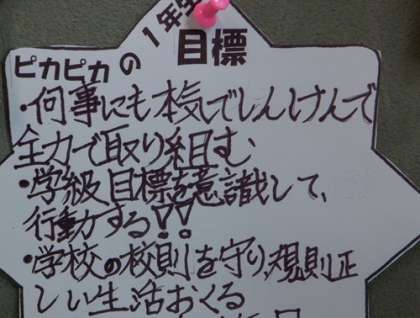 ピカピカの1年生
目標
・何事にも本気でしんけんで
全力で取り組む
・学級目標を意識して、
行動する!!
・学校の校則を守り、規則正
しい生活おくる